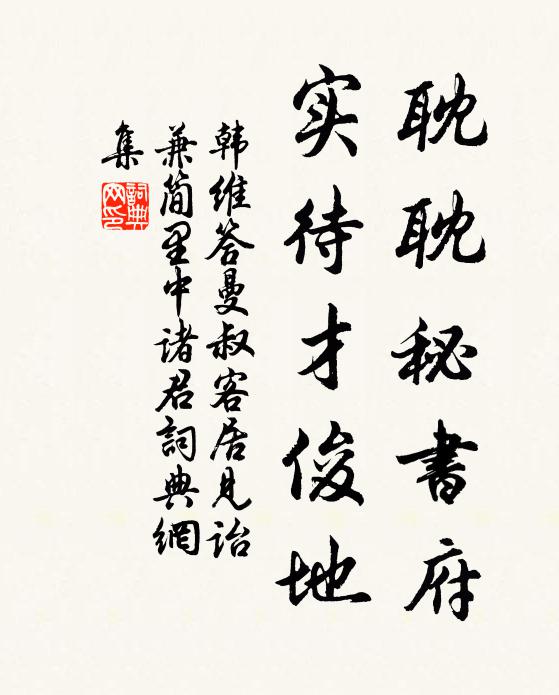 耽耽秘書府
实待才俊地
韩维答曼叔客居见诒
兼简里中诸君詞典網
集
詞典网印